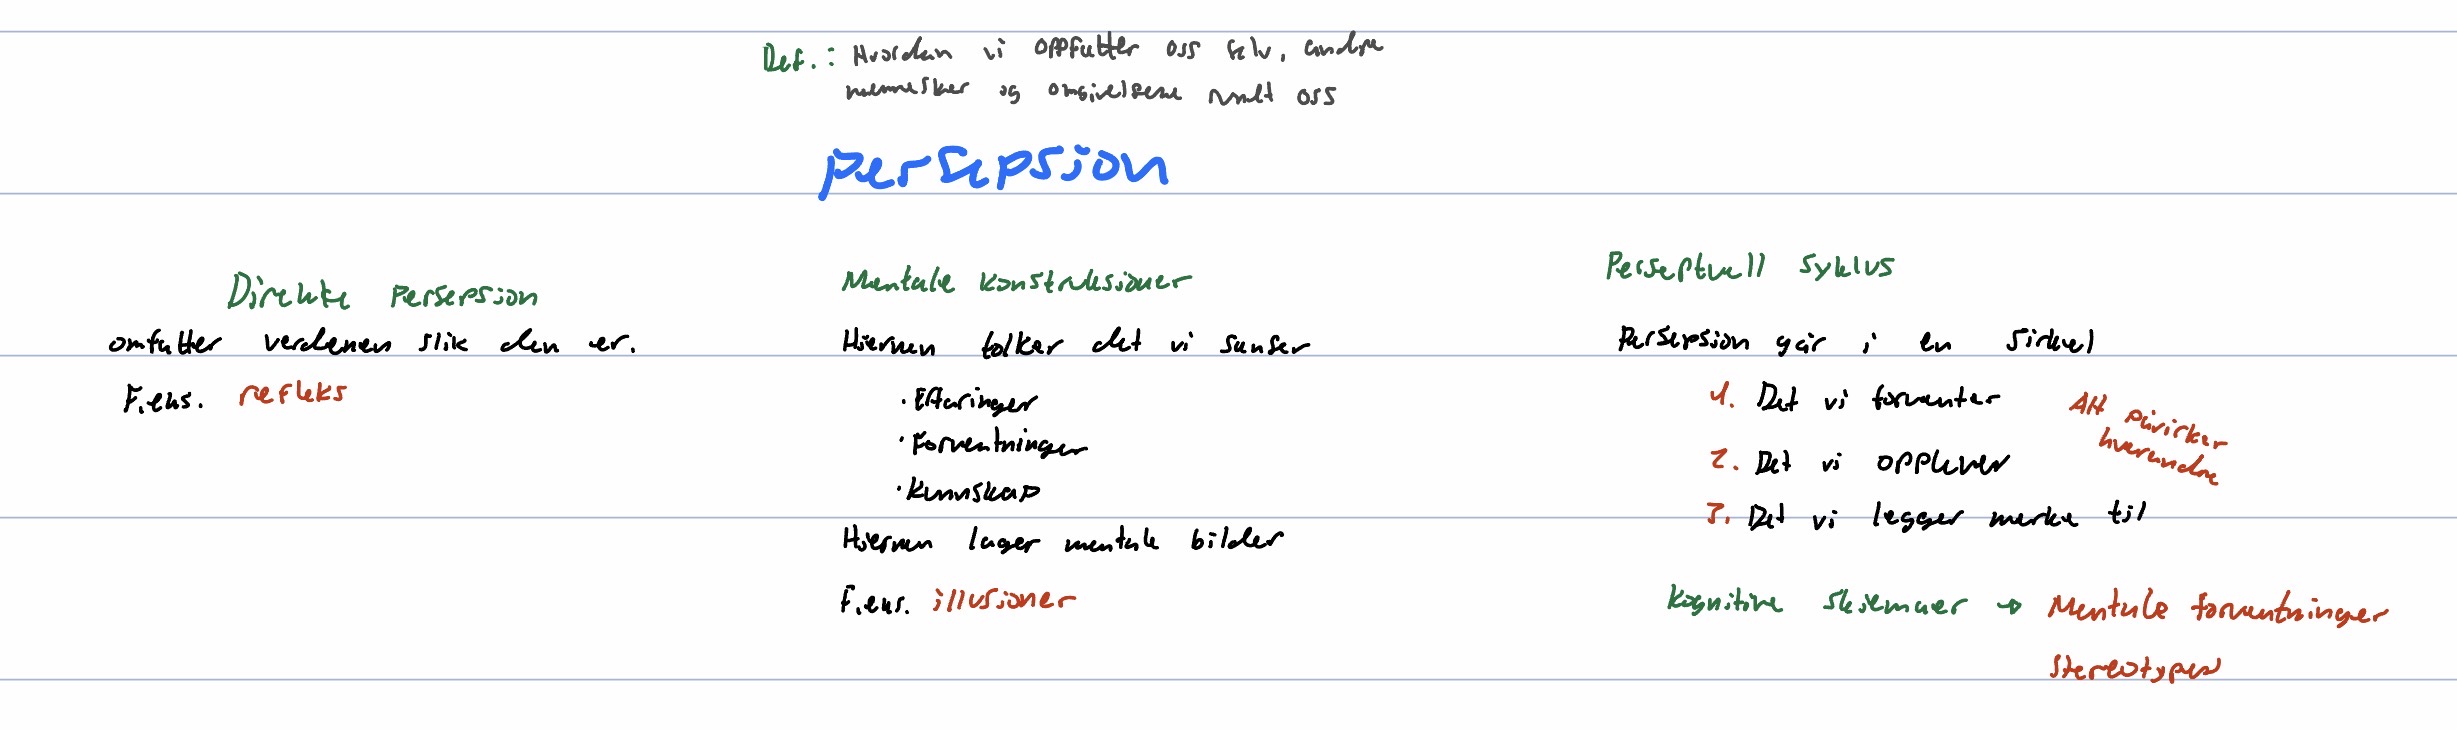 Def.: Hvordan vi oppfatter oss selv, andre
mennesker og omgivelsene rundt oss
persepsjon
Direkte Persepsjon
omfatter verdenen slik den er.
F.eks. refleks
Mentale konstruksjoner
Hjernen tolker det vi sanser
· Erfaringer
· Forventninger
· Kunnskap
Hjernen lager mentale bilder
F.eks. illusjoner
Perseptuell syklus
Persepsjon går i en sirkel
1. Det vi forventer
2. Det vi opplever
3. Det vi legger merke til
Alt påvirker
hverandre
Kognitive skjemaer → Mentale forventninger
stereotyper